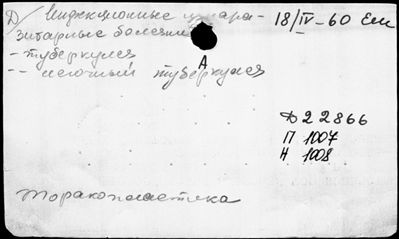 Д/ Инфекционные и пара- 18/IV-60 Ем
зитарные болезни
- туберкулез
-- легочный туберкулез
А
Д22866
П 1007
Н 1008
торакопластика